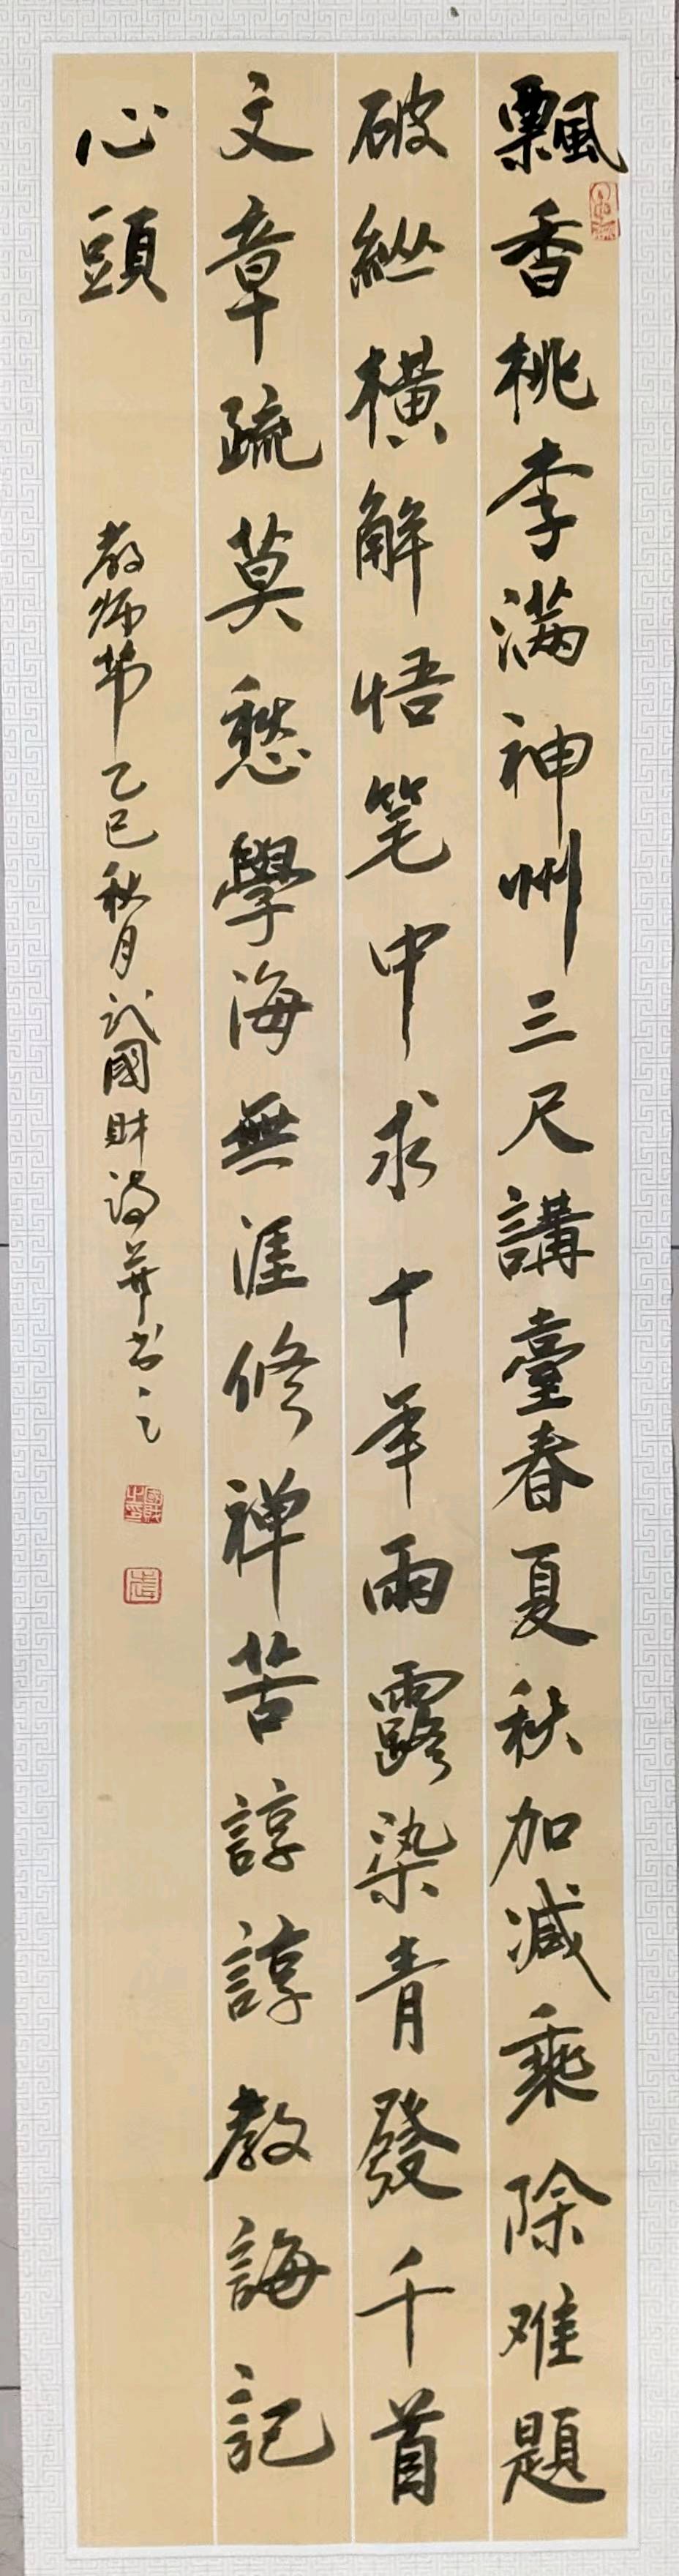 飄香桃李满神州三尺講臺春夏秋加減乘除难題
破縱橫解悟笔中求十年雨露染青發千首
文章疏莫愁學海無涯修禅苦諄諄教誨記
心頭
教师节乙巳秋月武國財詩并书之
國財之印
武